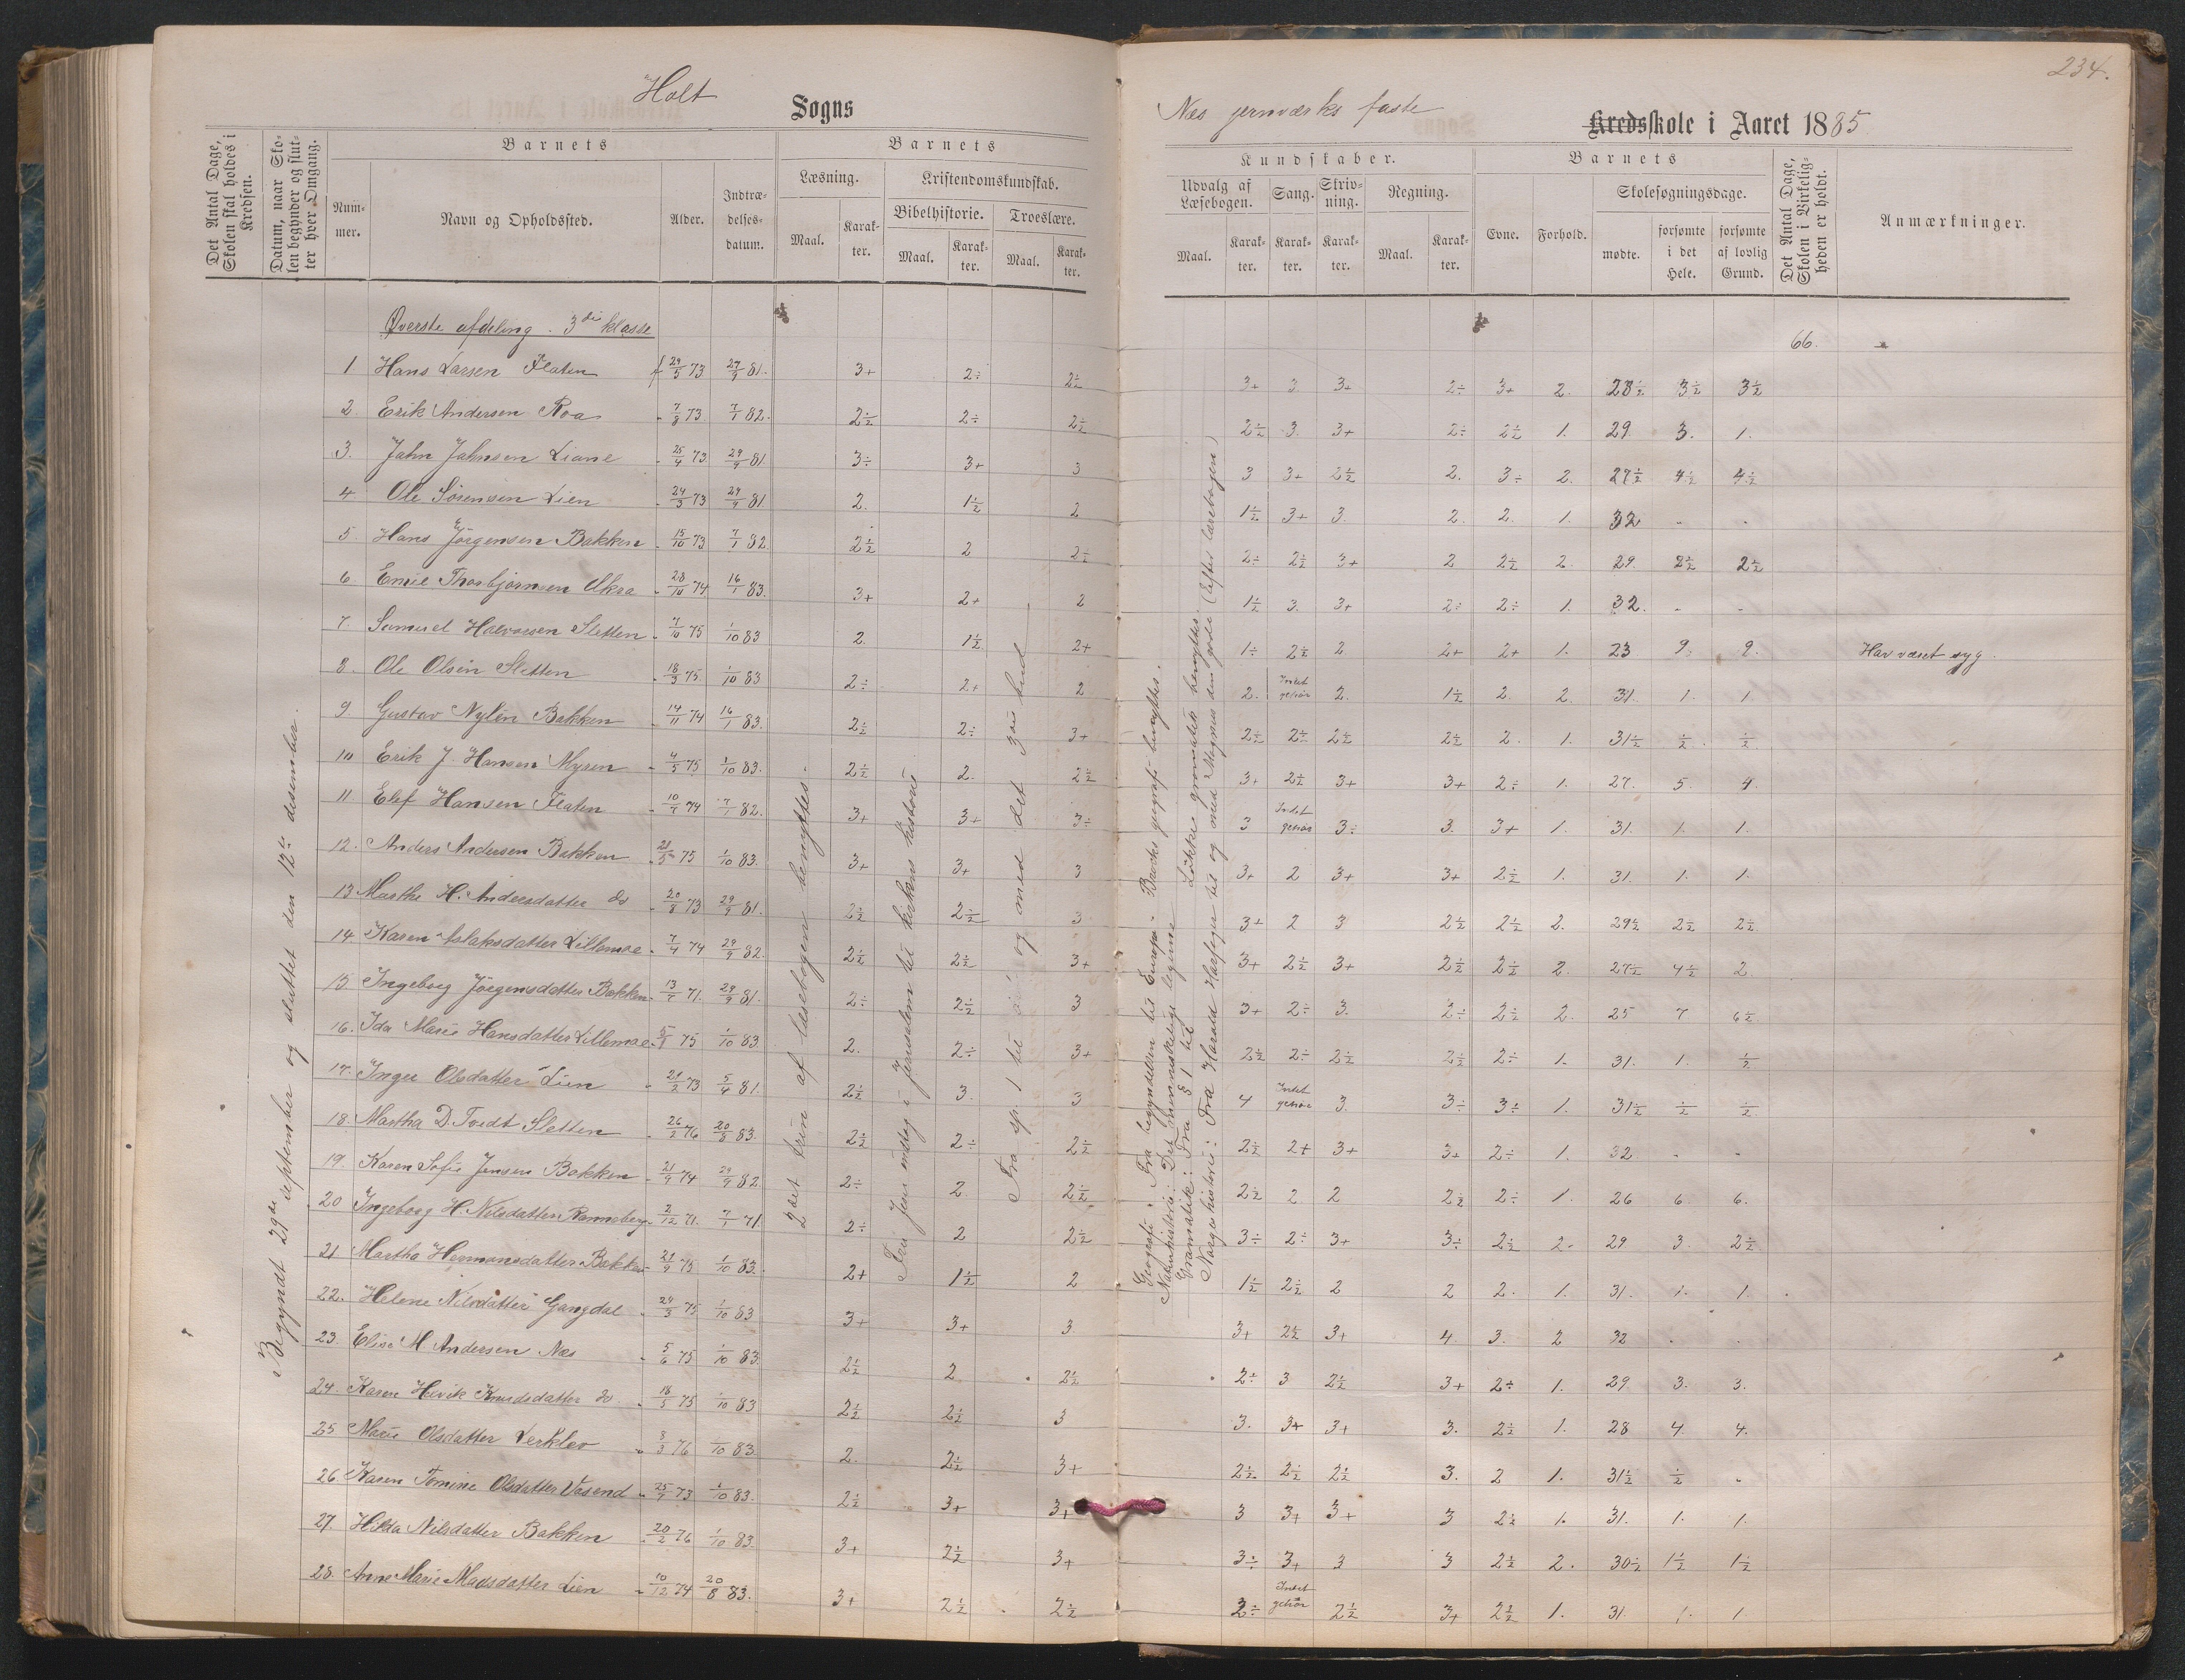 234.
Holt Sogns
Næs jernværks faste Kredsskole i Aaret 1885
Det Antal Dage, Skolen skal holdes i Kredsen.
Datum, naar Skolen begynder og slutter hver Omgang.
Barnets
Nummer. Navn og Opholdssted. Alder. Indtrædelsesdatum.
Barnets Kundskaber.
Læsning. Maal. Karakter.
Kristendomskundskab.
Bibelhistorie. Maal. Karakter.
Troeslære. Maal. Karakter.
Udvalg af Læsebogen. Maal. Karakter.
Sang. Karakter.
Skrivning. Karakter.
Regning. Maal. Karakter.
Barnets
Evne. Forhold.
Skolesøgningsdage.
mødte. forsømte i det Hele. forsømte af lovlig Grund.
Det Antal Dage, Skolen i Virkeligheden er holdt.
Anmærkninger.
Begyndt 29de september og sluttet den 12te desember.
Øverste afdeling. 3die klasse
66.
1 Hans Larsen Flaten f 29/5 73 29/9 81. 3+ 2÷ 2½ 3+ 3 3+ 2÷ 3+ 2. 28½ 3½ 3½
2 Erik Andersen Roa 7/8 73 7/1 82. 2½ 2÷ 2½ 2½ 3 3+ 2÷ 2½ 1. 29. 3. 1.
3. Jahn Jahnsen Liane 25/4 73 29/9 81 3÷ 3+ 3 3 3+ 2½ 2. 3÷ 2. 27½ 4½ 4½
4 Ole Sörensen Lien 24/3 73 29/9 81 2. 1½ 2 1½ 3+ 3. 2. 2. 1. 32 - -
5. Hans Jörgensen Bakken 15/10 73 7/1 82 2½ 2 2÷ 2÷ 2½ 3+ 2 2½ 2. 29. 2½ 2½
6. Emil Thorbjørnsen Akra 28/10 74 16/1 83. 3+ 2+ 2 1½ 3. 3+ 2÷ 2÷ 1. 32. - -
7. Samuel Halvorsen Sletten 7/10 75 1/10 83 2. 1½ 2+ 1÷ 2½ 2 2+ 2+ 1. 23 9. 9. Har været syg.
8. Ole Olsen Sletten 18/3 75. 1/10 83 2÷ 2+ 2 2. Intet gehör 2. 1½ 2. 2. 31. 1. 1.
9 Gustav Nylén Bakken 14/11 74 16/1 83. 2½ 2÷ 3+ 2½ 2÷ 2½ 2½ 2. 1. 31½ ½ ½
10 Erik J. Hansen Myren 4/5 75 1/10 83. 2½ 2. 2½ 3+ 2½ 3+ 3+ 2÷ 1. 27. 5. 4.
11. Elef Hansen Flaten 10/7 74 7/1 82. 3+ 3+ 3÷ 3 Intet gehör 3÷ 3. 3+ 1. 31. 1. 1.
12. Anders Andersen Bakken 21/5 75 1/10 83. 3+ 3+ 3 3+ 2 3+ 3+ 2½ 1. 31. 1. 1.
13 Marthe H. Andersdatter do 20/8 73 29/9 81. 2½ 2½ 3 3+ 2 3 2½ 2½ 2. 29½ 2½ 2½
14 Karen Aslaksdatter Lillemoe 7/4 74 29/9 82. 2½ 2½ 3+ 3+ 2½ 3+ 2½ 2½ 2. 27½ 4½ 2.
15. Ingeborg Jörgensdatter Bakken 13/7 71. 29/9 81. 2÷ 2½ 3 3+ 2÷ 3. 2÷ 2½ 2. 25 7 6½
16. Ida Marie Hansdatter Lillemoe 75 1/10 83 2. 2÷ 3+ 2½ 2÷ 2½ 2½ 2÷ 1. 31. 1. ½
17. Inger Olsdatter Lien 73 5/4 81. 2½ 3. 3 4 Intet gehör 3. 3÷ 3÷ 1. 31½ ½ ½
18. Martha D. Tvedt Sletten 26/2 76 20/8 83. 2½ 2÷ 2½ 2½ 2+ 3+ 3+ 2÷ 1. 32 - -
19. Karen Sofie Jensen Bakken 21/9 74 29/9 82. 2÷ 2 2½ 2½ 2. 2 2½ 2÷ 1. 26 6. 6.
20 Ingeborg H. Nilsdatter Ramneberg 2/12 71. 7/1 71. 2÷ 2 2½ 3÷ 2÷ 3+ 3÷ 2½ 2. 29 3. 2½
21. Martha Hermansdatter Bakken 75 1/10 83. 2+ 1½ 2 1½ 2½ 2 2 2. 1. 31. 1. 1.
22. Helene Nilsdatter Gangdal 24/3 75 1/10 83 3+ 3+ 3 3+ 2½ 3+ 4. 3. 2 32 . .
23. Elise M Andersen Næs 5/6 75 1/10 83. 2½ 2 2½ 2÷ 3 2½ 3+ 2÷ 1. 29. 3. 3.
24. Karen Knudsdatter do. 18/5 75 1/10 83 2½ 2½ 3 3. 3+ 3+ 3. 2½ 1. 28 4. 4.
25 Marie Olsdatter Lerklev 8/3 76 1/10 83. 2. 2½ 3+ 2½ 2½ 2½ 3. 2 1. 31½ ½ -
26. Karen Tomine Olsdatter Vasend 25/7 73 1/10 83. 2½ 3+ 3+ 3 3+ 3+ 3 2½ 1. 31. 1. 1.
27. Hilda Nilsdatter Bakken 20/2 76 1/10 83. 3+ 2½ 3+ 3÷ 3+ 3 3 2½ 2. 30½ 1½ 1½
28. Anne Marie Madsdatter Lien 10/12 74 20/8 83. 3+ 2½ 2½ 2÷ Intet gehör 2½ 3+ 2½ 1. 31. 1. 1.
2det trin af læsebogen benyttes.
Fra Jesu indtog i Jerusalem til kirkens historie
Fra sp. 1 til og med det 3die bud
Geografi: Fra begyndelsen til Europa. Bachs geografi benyttes.
Naturhistorie: Det menneskelige legeme
Gramatik: Fra § 1 til Lökkes gramatik benyttes.
Norges historie: Fra Harald Haarfager til og med Magnus den gode (Efter læsebogen)